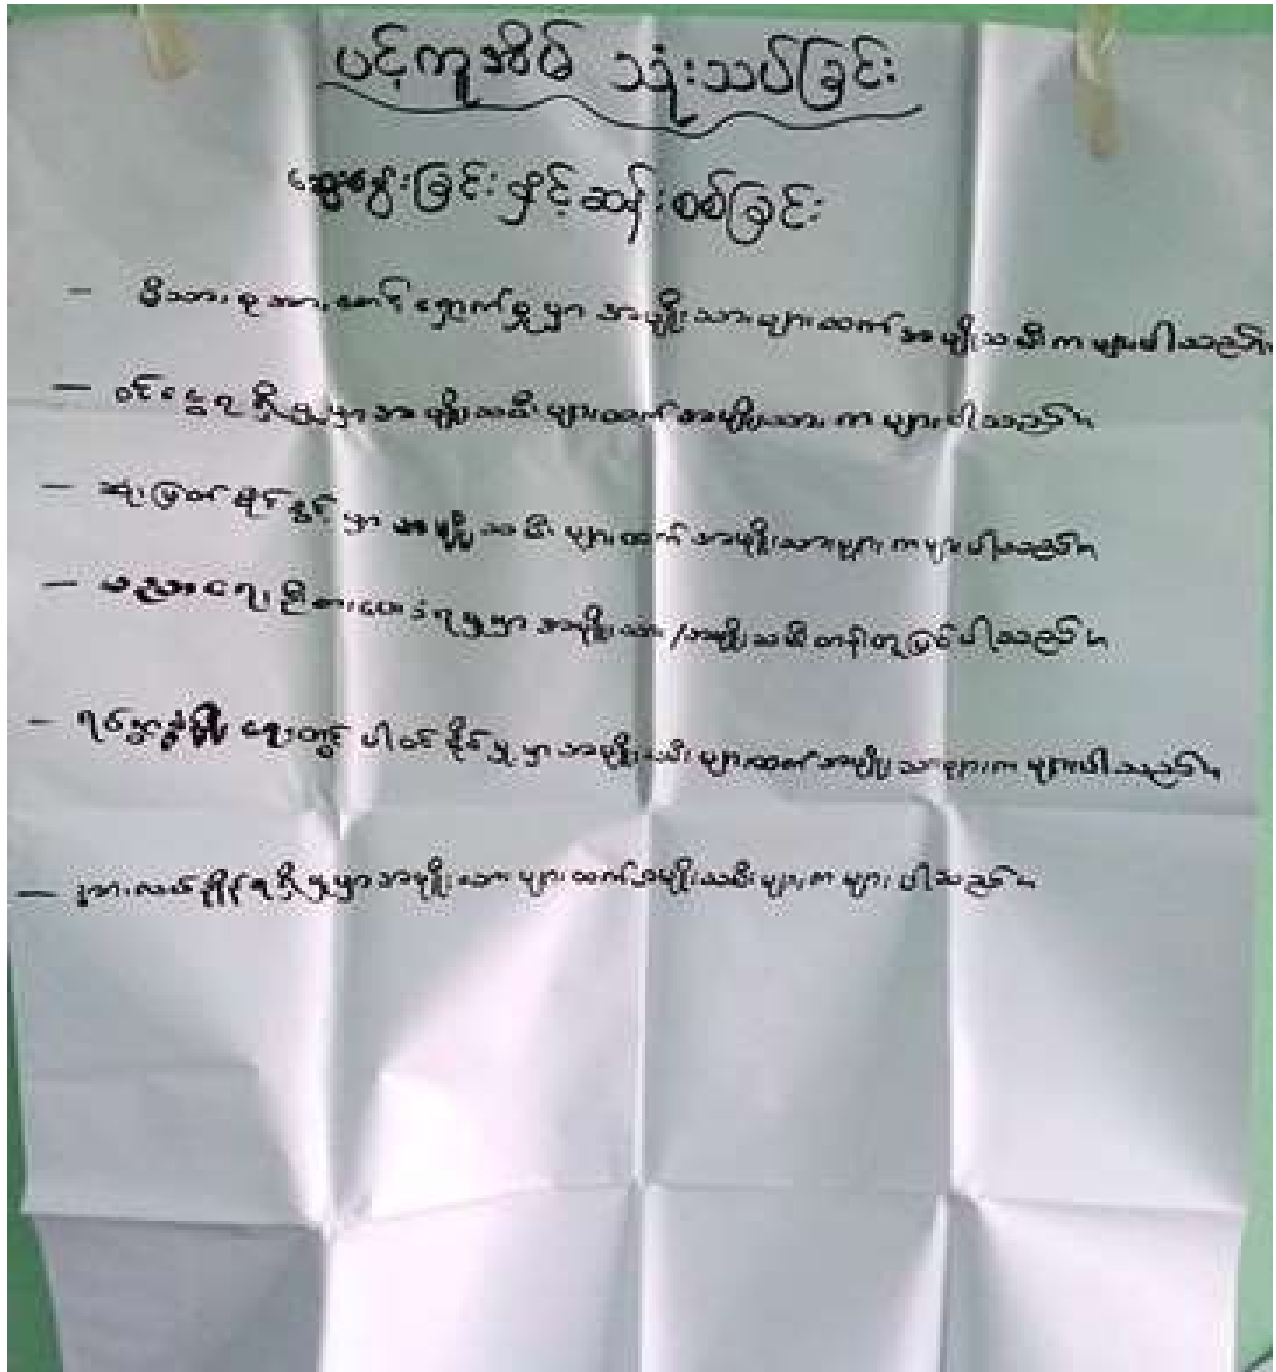 ပင့်ကူအိမ် သုံးသပ်ခြင်း
ဆွေးနွေးခြင်းနှင့်ဆန်းစစ်ခြင်း
- မိသားစုအား စောင့်ရှောက်မှုမှာ အမျိုးသားများထက် အမျိုးသမီးက များပါသည်။
- ဝင်ငွေရရှိမှုမှာ အမျိုးသမီးများထက် အမျိုးသားက များပါသည်။
- ဆုံးဖြတ်ပိုင်ခွင့်မှာ အမျိုးသမီးများထက် အမျိုးသားများကများပါသည်။
- ပညာရေး မှုမှာ အမျိုးသား/အမျိုးသမီးတန်းတူဖြစ်ပါသည်။
- ရပ်ရွာဖွံ့ဖြိုးရေးတွင် ပါဝင်နိုင်မှုမှာ အမျိုးသမီးများထက် အမျိုးသားများက များပါသည်။
- နားလယ်ချိန်ရရှိမှုမှာ အမျိုးသားများထက် အမျိုးသမီးများက များပါသည်။